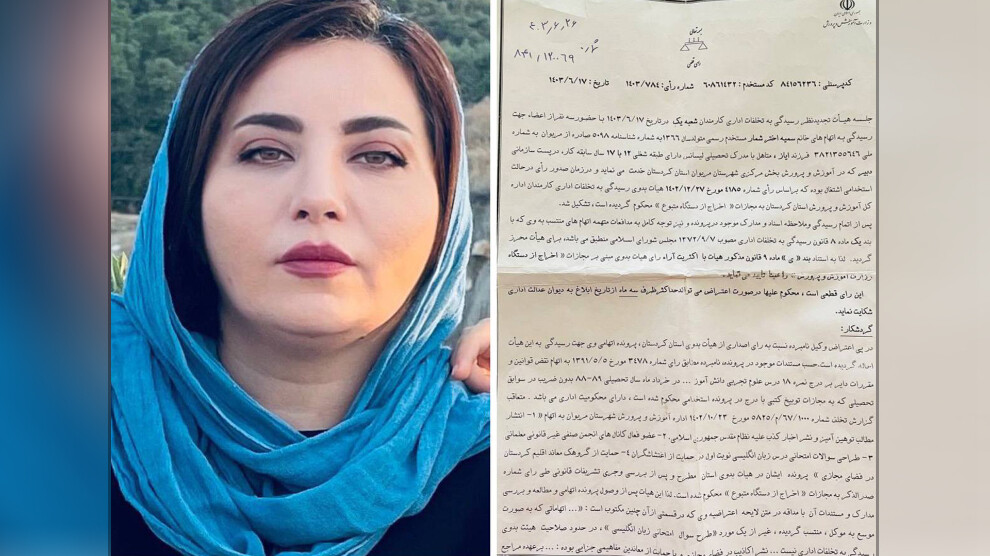 جمهوری اسلامی ایران
وزارت آموزش و پرورش
بسمه تعالی
رای قطعی
۴۰۳٫۶٫۲۶
۸۴۱٫۱۲۰۰۶۹
کدپرسنلی : ۸۴۱۵۶۲۳۶ کد مستخدم : ۶۰۸۶۱۴۳۲ شماره رأی : ۱۴۰۳/۷۸۴ تاریخ : ۱۴۰۳/۶/۱۷
جلسه هیأت تجدیدنظر رسیدگی به تخلفات اداری کارمندان شعبه یک در تاریخ ۱۴۰۳/۶/۱۷ با حضور سه نفر از اعضاء جهت
رسیدگی به اتهام های خانم سمیه اختر شمار مستخدم رسمی متولدسال ۱۳۶۶ به شماره شناسنامه ۵۰۹۸ صادره از مریوان به شماره
ملی ۳۸۲۱۳۵۵۶۴۶ فرزند ایاز ، متاهل با مدرک تحصیلی لیسانس، دارای طبقه شغلی ۱۲ با ۱۷ سال سابقه کار، درپست سازمانی
دبیر که در آموزش و پرورش بخش مرکزی شهرستان مریوان استان کردستان خدمت می نماید و درزمان صدور رأی درحالت
استخدامی اشتغال بوده که براساس رأی شماره ۴۱۸۵ مورخ ۱۴۰۲/۱۲/۲۷ هیات بدوی رسیدگی به تخلفات اداری کارمندان اداره
کل آموزش و پرورش استان کردستان به مجازات « اخراج از دستگاه متبوع » محکوم گردیده است ، تشکیل شد.
پس از اتمام رسیدگی وملاحظه اسناد و مدارک موجود درپرونده و نیز توجه کامل به مدافعات متهمه اتهام های منتسب به وی که با
بند یک ماده ۸ قانون رسیدگی به تخلفات اداری مصوب ۱۳۷۲/۹/۷ مجلس شورای اسلامی منطبق می باشد، برای هیأت محرز
گردید. لذا به استناد بند « ی » ماده ۹ قانون مذکور هیات با اکثریت آراء رای هیات بدوی مبنی بر مجازات « اخراج از دستگاه
وزارت آموزش و پرورش » را عیناً تایید می نماید.
این رای قطعی است ، محکوم علیها درصورت اعتراض می تواند حداکثر ظرف سه ماه از تاریخ ابلاغ به دیوان عدالت اداری
شکایت نماید.
گردشکار :
در پی اعتراض وکیل نامبرده نسبت به رای اصداری از هیأت بدوی استان کردستان، پرونده اتهامی وی جهت رسیدگی به این هیأت
احاله گردیده است. حسب مستندات موجود در پرونده، نامبرده مطابق رای شماره ۳۴۷۸ مورخ ۱۳۹۱/۵/۵ به اتهام نقض قوانین و
مقررات دایر بر درج نمره ۱۸ درس علوم تجربی دانش آموز ... در خرداد ماه سال تحصیلی ۸۹-۸۸ بدون ضریب در سوابق
تحصیلی که به مجازات توبیخ کتبی با درج در پرونده استخدامی محکوم شده است ، دارای محکومیت اداری می باشد . متعاقب
گزارش تخلف شماره ۵۸۲۵/م/۶۷/۱۰۰۰ مورخ ۱۴۰۲/۱۰/۲۳ اداره آموزش و پرورش شهرستان مریوان به اتهام « ۱- انتشار
مطالب توهین آمیز و نشر اخبار کذب علیه نظام مقدس جمهوری اسلامی. ۲- عضو فعال کانال های انجمن صنفی غیر قانونی معلمانی
۳- طراحی سوالات امتحانی درس زبان انگلیسی نوبت اول در حمایت از اغتشاشگران ۴- حمایت از گروهک معاند اقلیم کردستان
در فضای مجازی » پرونده ایشان در هیات بدوی استان مطرح و پس از بررسی وجری تشریفات قانونی طی رای شماره
صدرالذکر به مجازات « اخراج از دستگاه متبوع » محکوم شده است. لذا این هیات پس از وصول پرونده اتهامی و مطالعه و بررسی
مدارک و مستندات آن با مداقه در متن لایحه اعتراضیه وی که در قسمتی از آن چنین مکتوب است : « ... اتهاماتی که به صورت
موسع به موکل ، منتسب گردیده ، غیر از یک مورد «طرح سوال امتحانی زبان انگلیسی » ، در حدود صلاحیت هیئت بدوی
رسیدگی به تخلفات اداری نیست ... نشر اکاذیب در فضای مجازی و یا حمایت از معاندین مفاهیمی جزایی بوده : ... برعهده مراجع